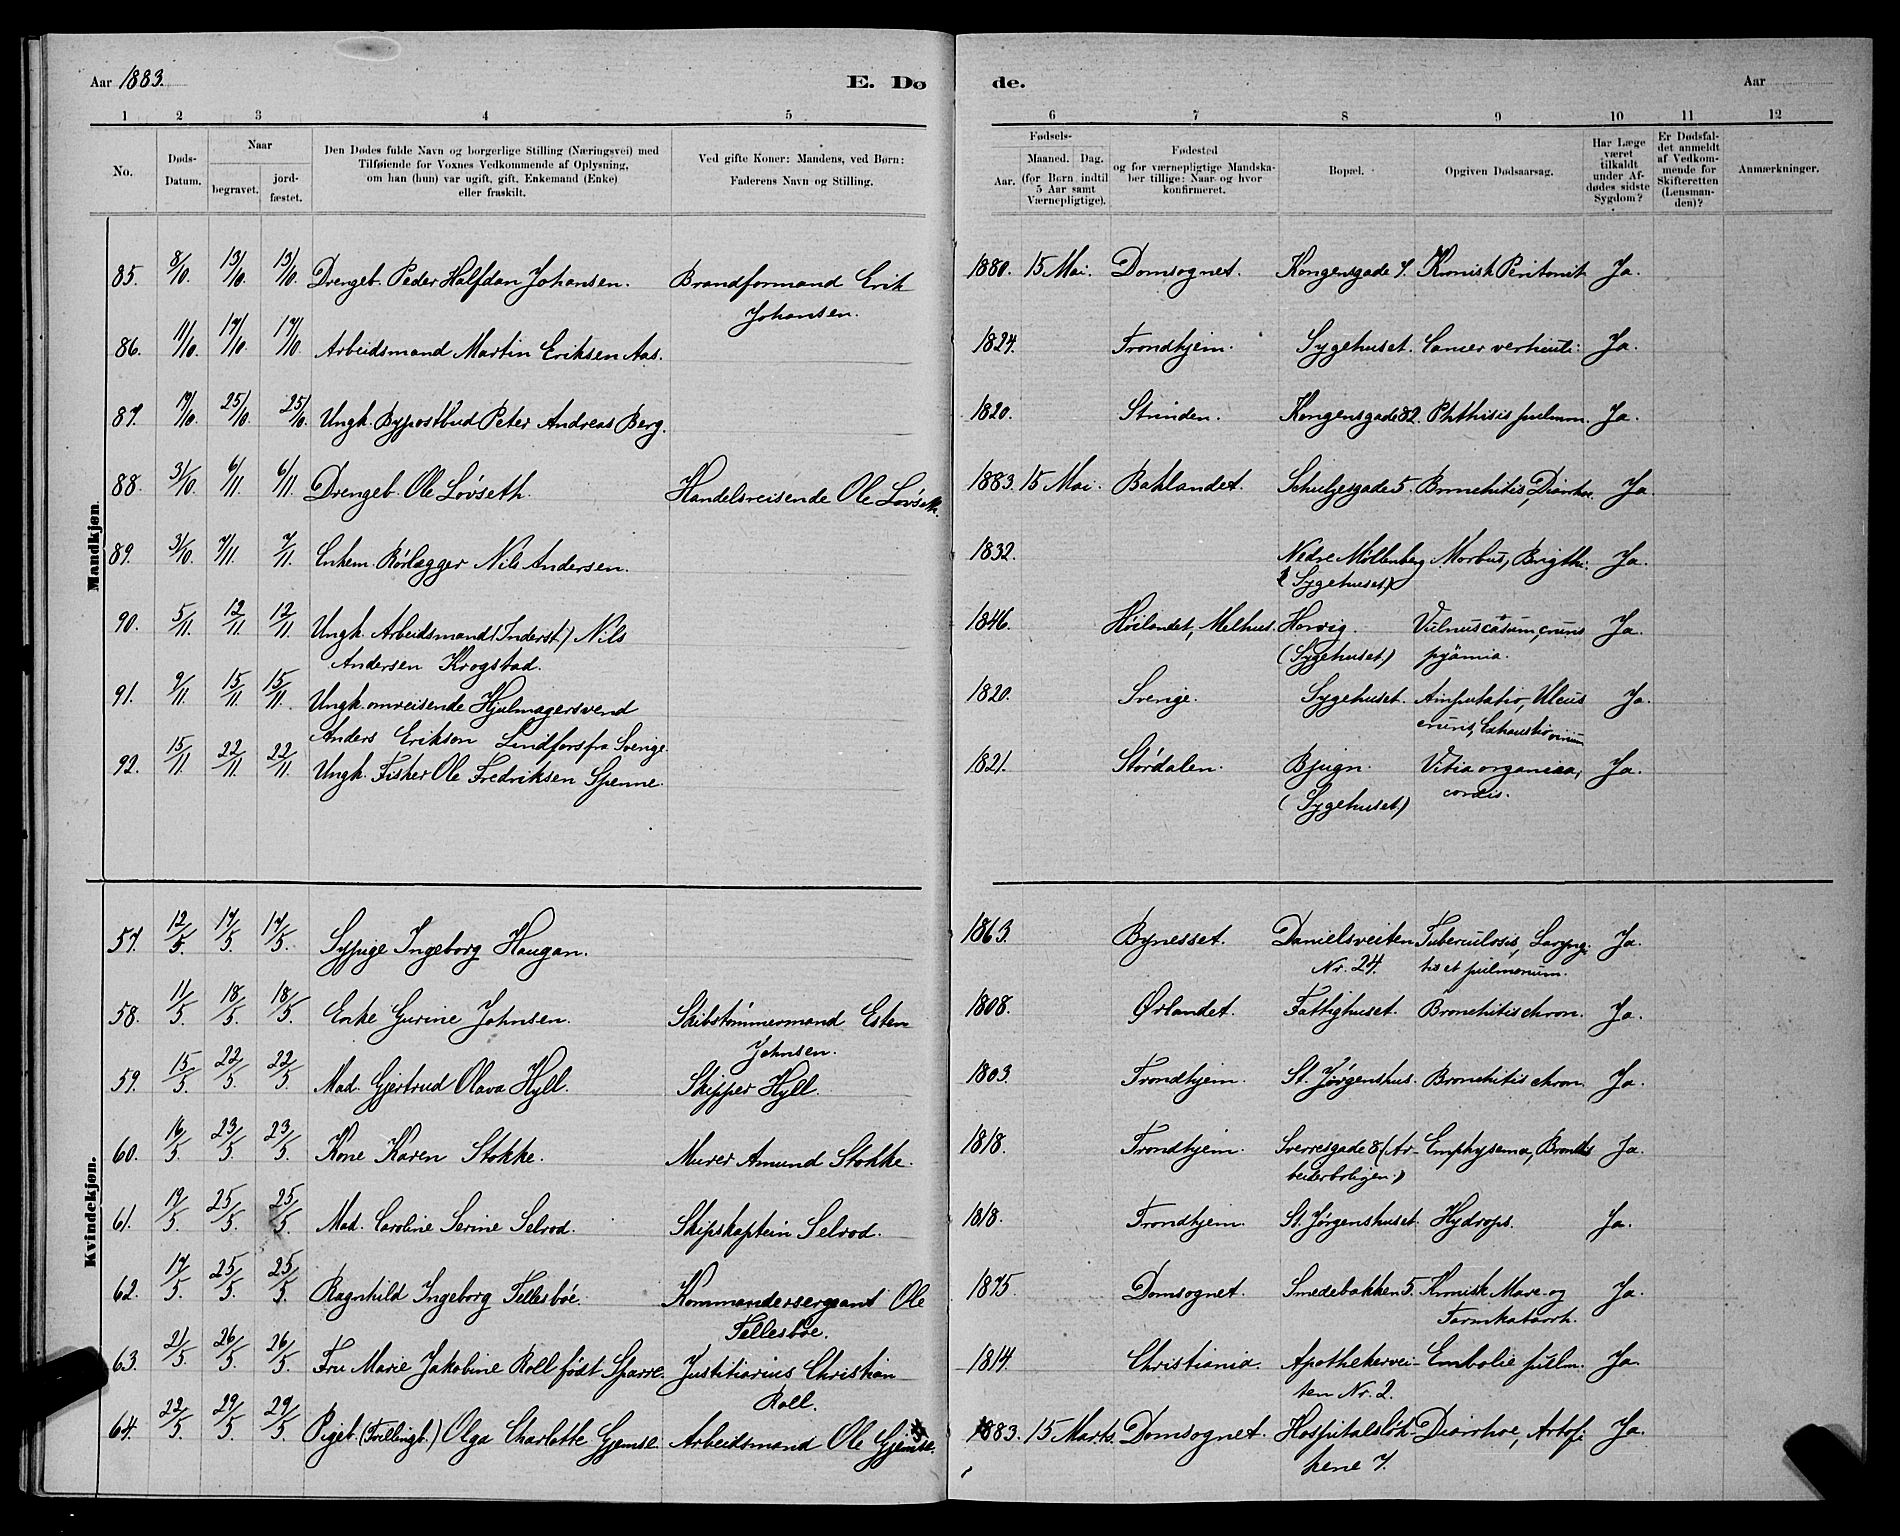 Aar 1883. E. Dø de. Aar
1 2 3 4 5 6 7 8 9 10 11 12
No. Døds-Datum. Naar begravet. jordfæstet. Den Dødes fulde Navn og borgerlige Stilling (Næringsvei) med
Tilføiende for Voxnes Vedkommende af Oplysning,
om han (hun) var ugift, gift, Enkemand (Enke)
eller fraskilt.
Ved gifte Koner: Mandens, ved Børn:
Faderens Navn og Stilling.
Fødsels-
Aar. Maaned. Dag.
(for Børn indtil
5 Aar samt
Værnepligtige).
Fødested
og for værnepligtige Mandska-
ber tillige: Naar og hvor
konfirmeret.
Bopæl.
Opgiven Dødsaarsag.
Har Læge
været
tilkaldt
under Af-
dødes sidste
Sygdom?
Er Dødsfal-
det anmeldt
af Vedkom-
mende for
Skifteretten
(Lensman-
den)?
Anmærkninger.
Mandkjøn.
85. 8/10. 13/10. 13/10. Drengeb. Peder Halfdan Johansen. Brandformand Erik 1880. 15 Mai. Domsognet. Kongensgade 7. Kronisk Peritonit Ja.
Johansen.
86. 11/10. 17/10. 17/10. Arbeidsmand Martin Eriksen Aas. 1824. Trondhjem. Sygehuset. Cancer Ja.
87. 17/10. 25/10. 25/10. Ungk. Bypostbud Peter Andreas Berg. 1820. Strinden. Kongensgade 82. Phthisis pulmon. Ja.
88. 31/10. 6/11. 6/11. Drengeb. Ole Løvseth. Handelsreisende Ole Løvseth. 1883. 15 Mai. Baklandet. Schultzesgade 5. Bronchitis, Diarrhoe. Ja.
89. 31/10. 7/11. 7/11. Enkem. Rørlægger Nils Andersen. 1832. Nedre Møllenberg Morbus, Brigthi. Ja.
(Sygehuset)
90. 5/11. 12/11. 12/11. Ungk. Arbeidsmand (Inderst.) Nils 1846. Høilandet, Melhus. Horvig. Vulnus cæsum, cruris Ja.
Andersen Krogstad. (Sygehuset.) pyämia.
91. 9/11. 15/11. 15/11. Ungk. omreisende Hjulmagersvend 1820. Sverige. Sygehuset. Amputatio, Ulcus Ja.
Anders Erikson Lindfors fra Sverige. cruris, Exhaustio virium
92. 15/11. 22/11. 22/11. Ungk. Fisker Ole Fredriksen Spenne. 1821. Stördalen. Bjugn. Vitia organica, Ja.
(Sygehuset.) cordis.
Kvindekjøn.
57. 12/5. 17/5. 17/5. Sypige Ingeborg Haugan. 1863. Bynesset. Danielsveiten Tuberculosis, Laryng- Ja.
Nr. 24. tis et pulmonum.
58. 11/5. 18/5. 18/5. Enke Gurine Johnsen. Skibstømmermand Esten 1808. Ørlandet. Fattighuset. Bronchitis chron. Ja.
Johnsen.
59. 15/5. 22/5. 22/5. Mad. Gjertrud Olava Hyll. Skipper Hyll. 1803. Trondhjem. St. Jørgenshus. Bronchitis chron. Ja.
60. 16/5. 23/5. 23/5. Kone Karen Stokke. Murer Amund Stokke. 1818. Trondhjem. Sverresgade 8 (Ar- Emphysema, Ja.
beiderboligen.)
61. 19/5. 25/5. 25/5. Mad. Caroline Serine Selrod. Skipskaptein Selrod. 1818. Trondhjem. St. Jørgenshuset. Hydrops. Ja.
62. 17/5. 25/5. 25/5. Ragnhild Ingeborg Tellesbøe. Kommandersergeant Ole 1875. Domsognet. Smedebakken 5. Kronisk Mave- og Ja.
Tellesbøe. Tarmkatarrh.
63. 21/5. 26/5. 26/5. Fru Marie Jakobine Roll født Sparre. Justitiarius Christian 1814. Christiania. Apothekervei- Embolie pulm. Ja.
Roll. ten Nr. 2.
64. 22/5. 29/5. 29/5. Pigeb. (Tvillingb.) Olga Charlotte Gjemse. Arbeidsmand Ole Gjemse. 1883. 15 Marts. Domsognet. Hospitalsløk- Diarrhoe, Ja.
kene 7.